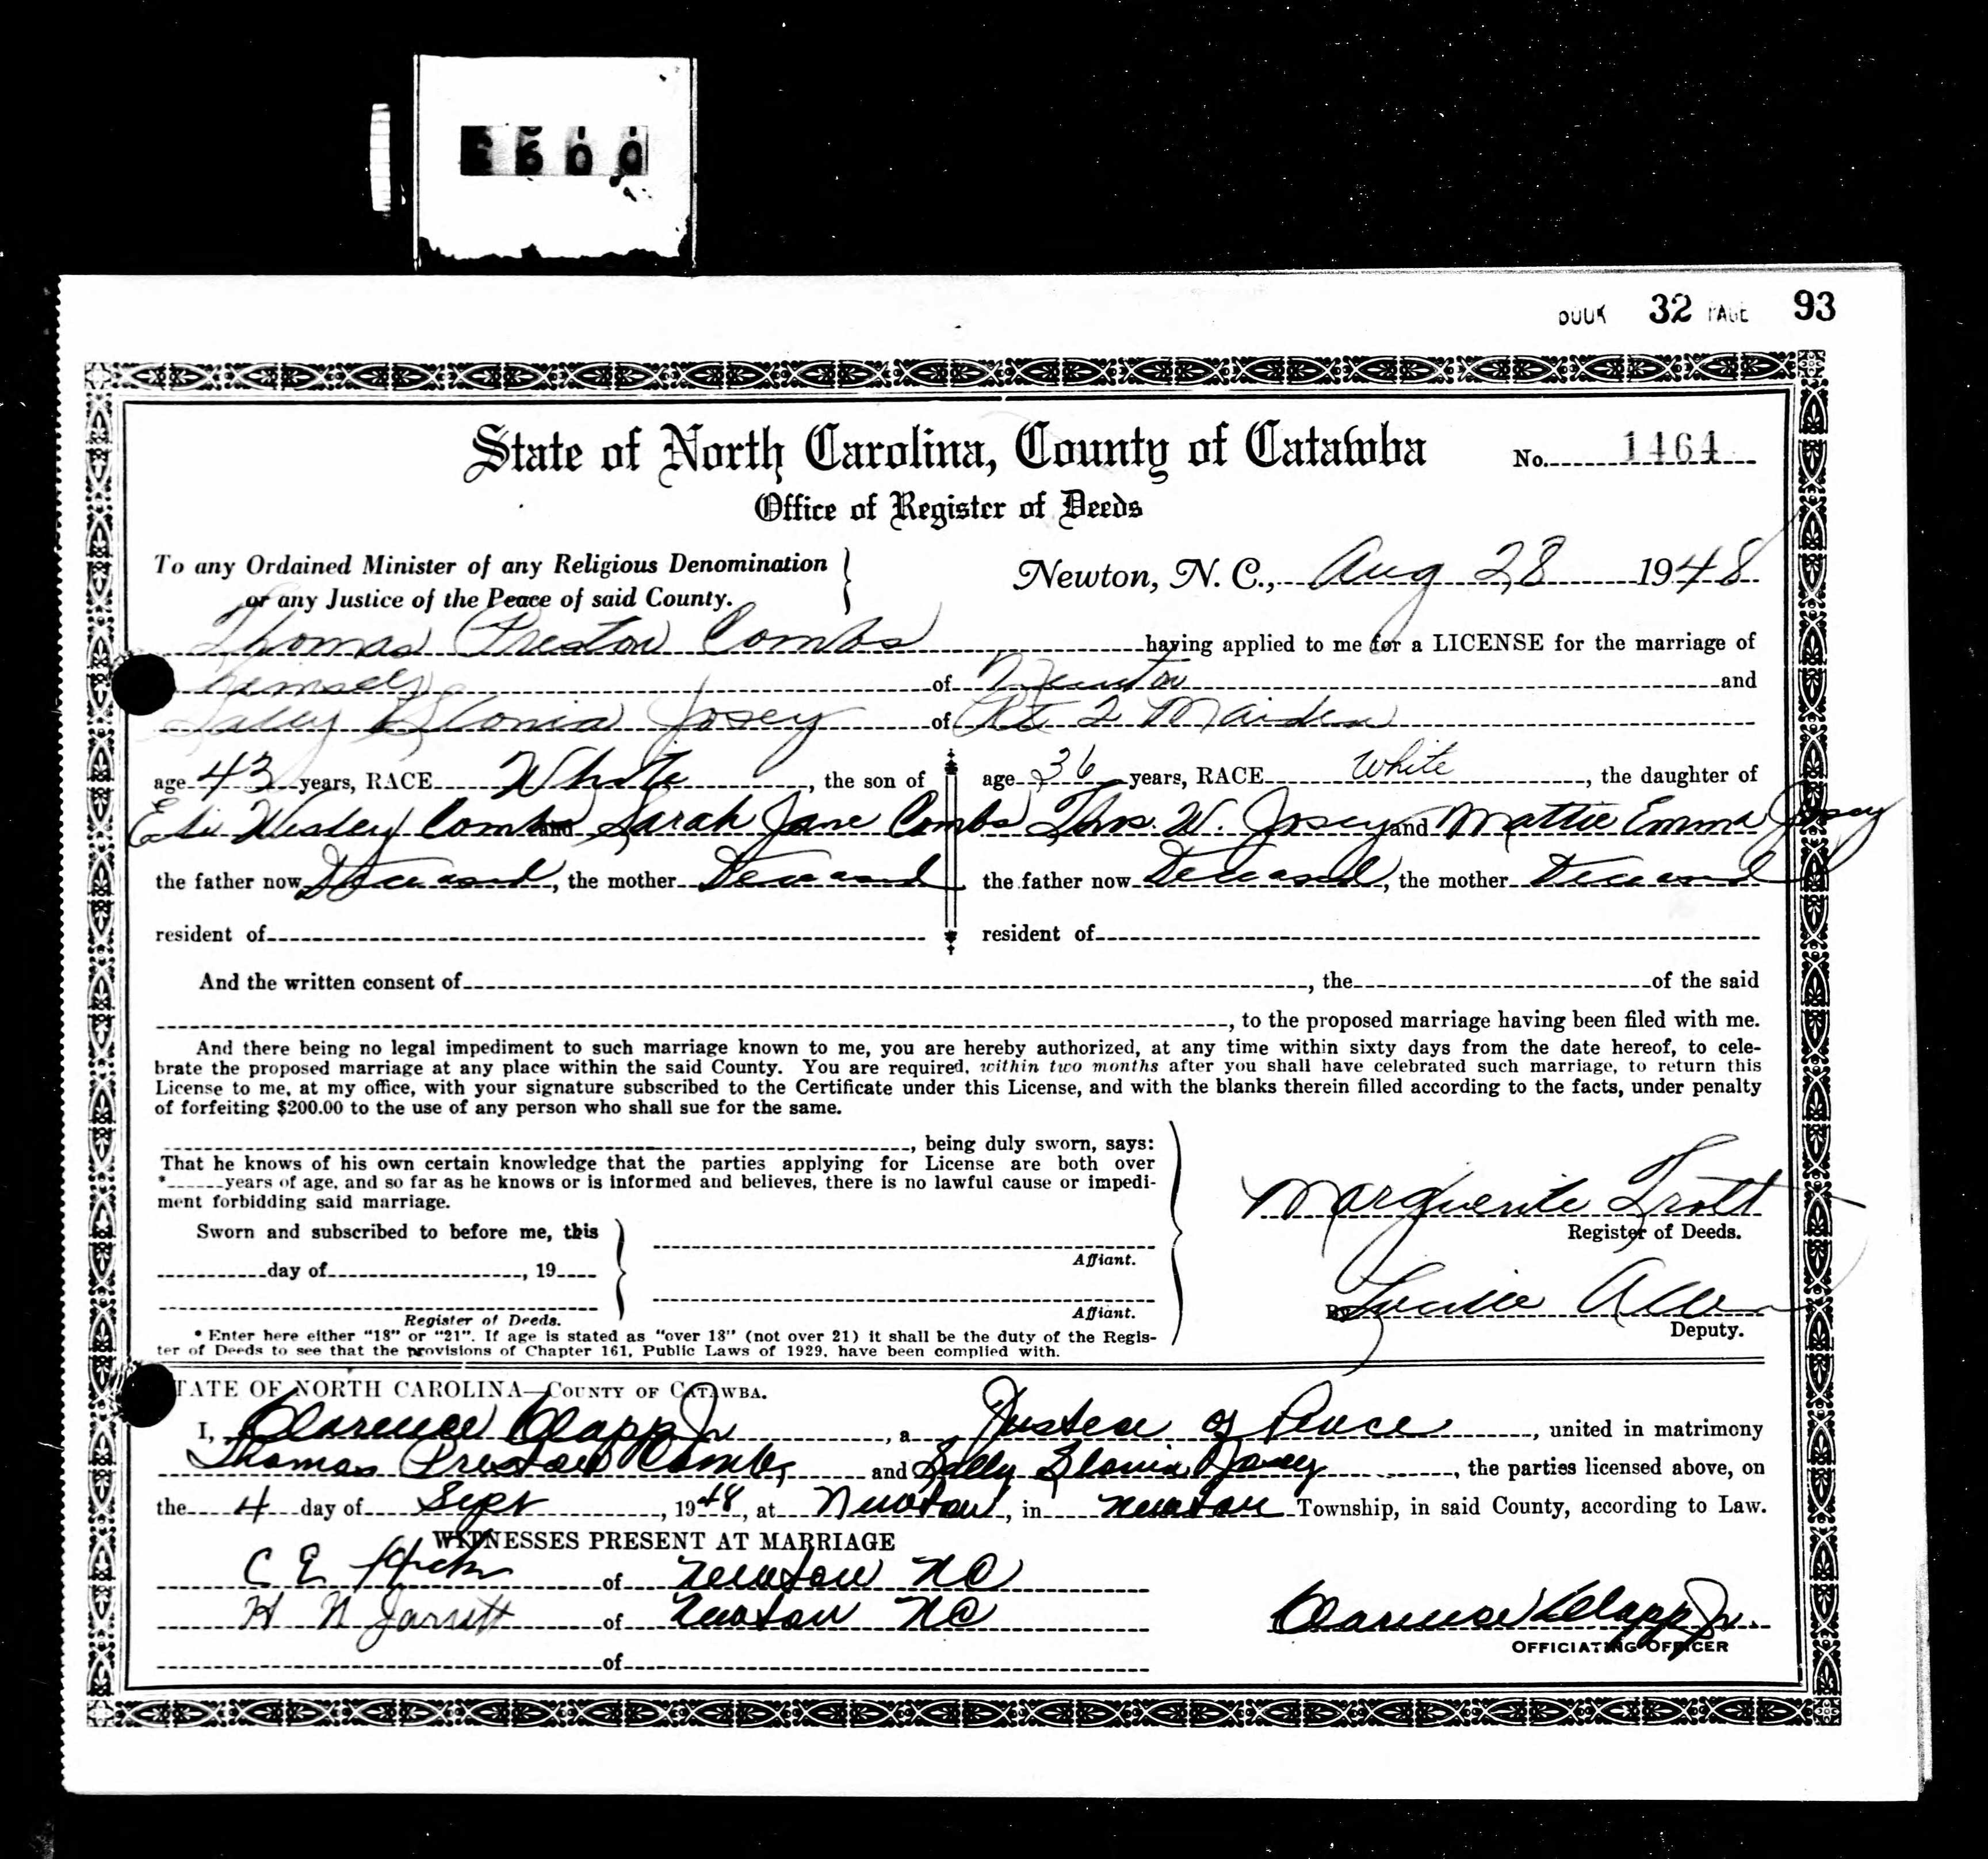 BOOK 32 PAGE 93
State of North Carolina, County of Catawba
No. 1464
Office of Register of Deeds
To any Ordained Minister of any Religious Denomination
or any Justice of the Peace of said County.
Newton, N. C., Aug 28 1948
Thomas Preston Combs having applied to me for a LICENSE for the marriage of
himself of Newton and
Sally Slonia Josey of Rt 2 Maiden
age 43 years, RACE White, the son of
Eli Wesley Combs and Sarah Jane Combs
the father now Deceased, the mother Deceased
resident of
age 36 years, RACE White, the daughter of
Thos. W. Josey and Mattie Emma Josey
the father now Deceased, the mother Deceased
resident of
And the written consent of , the of the said
, to the proposed marriage having been filed with me.
And there being no legal impediment to such marriage known to me, you are hereby authorized, at any time within sixty days from the date hereof, to cele-
brate the proposed marriage at any place within the said County. You are required, within two months after you shall have celebrated such marriage, to return this
License to me, at my office, with your signature subscribed to the Certificate under this License, and with the blanks therein filled according to the facts, under penalty
of forfeiting $200.00 to the use of any person who shall sue for the same.
, being duly sworn, says:
That he knows of his own certain knowledge that the parties applying for License are both over
* years of age, and so far as he knows or is informed and believes, there is no lawful cause or impedi-
ment forbidding said marriage.
Sworn and subscribed to before me, this
day of , 19
Register of Deeds.
Affiant.
Affiant.
* Enter here either "18" or "21". If age is stated as "over 18" (not over 21) it shall be the duty of the Regis-
ter of Deeds to see that the provisions of Chapter 161, Public Laws of 1929, have been complied with.
Marguerite Trott
Register of Deeds.
By Lucille Allen
Deputy.
STATE OF NORTH CAROLINA—COUNTY OF CATAWBA.
I, Clarence Clapp Jr, a Justice of Peace, united in matrimony
Thomas Preston Combs and Sally Slonia Josey, the parties licensed above, on
the 4 day of Sept, 1948, at Newton, in Newton Township, in said County, according to Law.
WITNESSES PRESENT AT MARRIAGE
C E of Newton NC
H N Jarrett of Newton NC
of
Clarence Clapp Jr.
OFFICIATING OFFICER